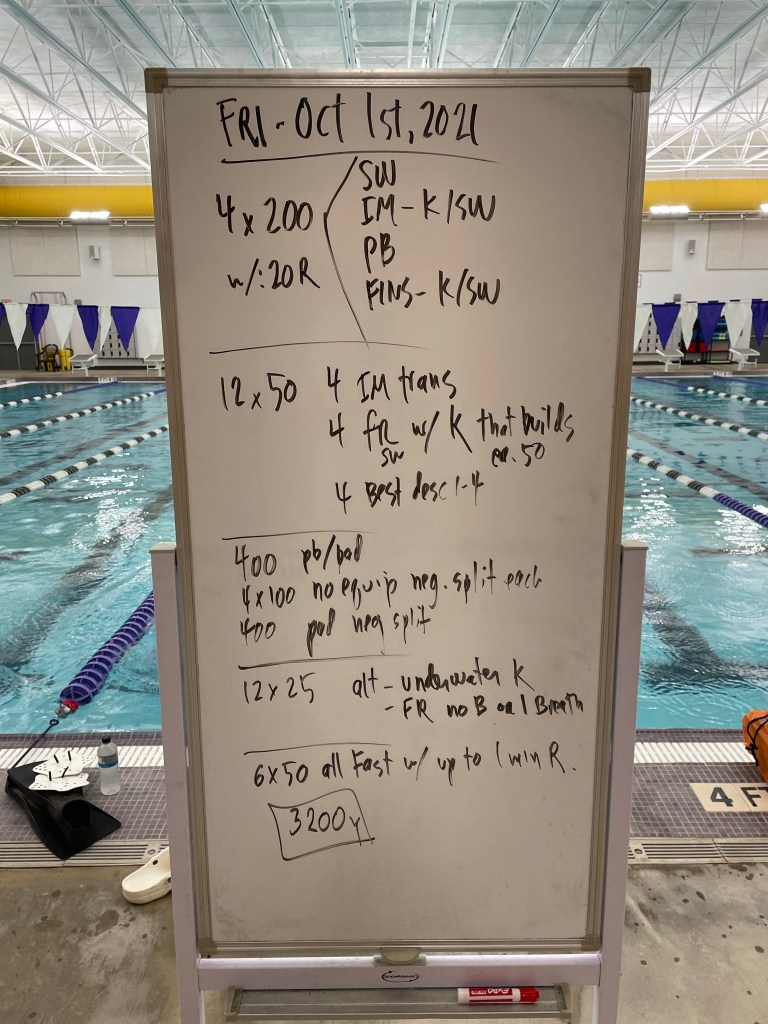 FRI - Oct 1st, 2021
4 x 200 SW
IM - K/SW
w/:20 R PB
FINS - K/SW
12 x 50 4 IM trans
4 FR w/ K that builds
SW ea. 50
4 Best desc 1-4
400 pb/pad
4x100 no equip neg. split each
400 pad neg split
12 x 25 alt - underwater K
- FR no B or 1 Breath
6x50 all Fast w/ up to 1 min R.
3200y
4 FT